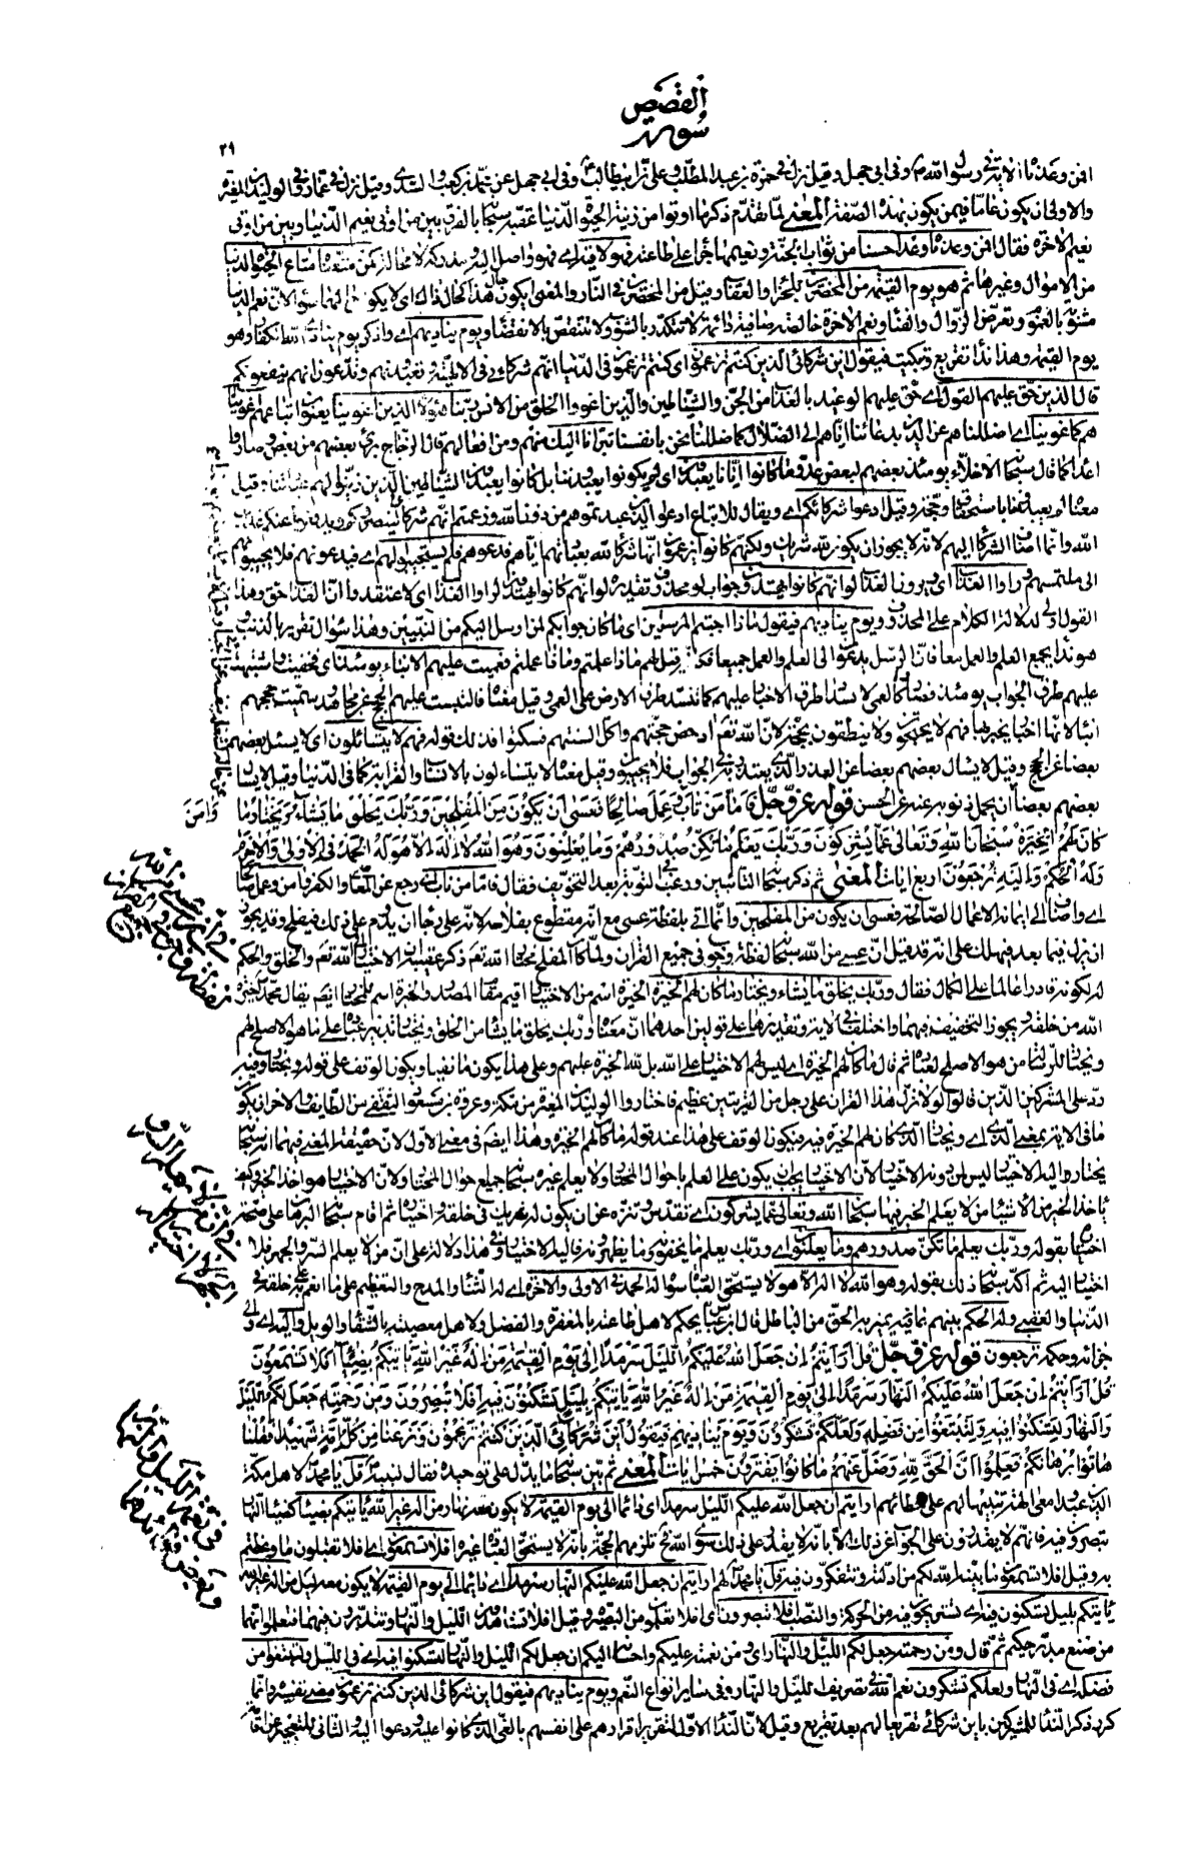 القصص
سورة
٣٩
افمن وعدناه الاية في رسول الله ص وفي ابي جهل وقيل نزلت في حمزة بن عبد المطلب وعلي بن ابيطالب ع وفي ابي جهل عن محمد بن كعب والسدي وقيل نزلت في عمار وفي الوليد بن المغيرة
والاولى ان يكون عاما فيمن يكون بهذه الصفة المعنى لما تقدم ذكر ما اوتوا من زينة الحيوة الدنيا عقبه سبحانه بالفرق بين من اوتي نعيم الدنيا وبين من اوتي
نعيم الاخرة فقال افمن وعدناه وعدا حسنا من ثواب الجنة ونعيمها جزاء على طاعته فهو لاقيه اي فهو واصل اليه ومدركه لا محالة كمن متعناه متاع الحيوة الدنيا
من الاموال وغيرها ثم هو يوم القيمة من المحضرين للجزاء والعقاب وقيل من المحضرين في النار والمعنى ايكون حال هذا كحال ذاك اي لا يكون حالهما سواء لان نعم الدنيا
مشوبة بالغموم وتعرض الزوال والفناء ونعم الاخرة خالصة صافية دائمة لا تتكدر بالشوب ولا تنتقص بالانقضاء ويوم يناديهم اي واذكر يوم ينادي الله الكفار وهو
يوم القيمة وهذا نداء تقريع وتبكيت فيقول اين شركائي الذين كنتم تزعمون اي كنتم تزعمون في الدنيا انهم شركاء في الالهية وتعبدونهم وتدعون انهم ينفعونكم
قال الذين حق عليهم القول اي حق عليهم الوعيد بالعذاب من الجن والشياطين والذين اغووا الخلق من الانس ربنا هؤلاء الذين اغوينا يعنون اتباعهم اغويناهم
كما غوينا اي اضللناهم عن الدين بدعائنا اياهم الى الضلال كما ضللنا نحن بانفسنا تبرانا اليك منهم ومن افعالهم قال الزجاج برئ بعضهم من بعض وصاروا
اعداء كما قال سبحانه الاخلاء يومئذ بعضهم لبعض عدو ما كانوا ايانا يعبدون اي لم يكونوا يعبدوننا بل كانوا يعبدون الشياطين الذين زينوا لهم عبادتنا وقيل
معناه لم يعبدونا باستحقاق وحجة وقيل ادعوا شركائكم اي ويقال للاتباع ادعوا الذين عبدتموهم من دون الله وزعمتم انهم شركائي لينصروكم ويدفعوا عنكم عذاب
الله وانما اضاف الشركاء اليهم لانه لا يجوز ان يكون لله شريك ولكنهم كانوا يزعمون انها شركاء لله بعبادتهم اياهم فدعوهم فلم يستجيبوا لهم اي فيدعونهم فلا يجيبونهم
الى ملتمسهم وراوا العذاب اي ويرون العذاب لو انهم كانوا يهتدون وجواب لو محذوف تقديره لو انهم كانوا يهتدون لراوا العذاب اي لاعتقدوا ان العذاب حق وهذا
القول اولى لدلالة الكلام على المحذوف ويوم يناديهم فيقول ماذا اجبتم المرسلين اي ما كان جوابكم لمن ارسل اليكم من النبيين وهذا سؤال تقرير بالذنب
وهو نداء يجمع العلم والعمل معا فان الرسل يدعون الى العلم والعمل جميعا فكانه قيل لهم ماذا علمتم وماذا عملتم فعميت عليهم الانباء يومئذ اي فخفيت واشتبهت
عليهم طرق الجواب يومئذ فصاروا كالعمى لانسداد طرق الاخبار عليهم كما تنسد طرق الارض على العمى وقيل معناه فالتبست عليهم الحجج عن مجاهد وسميت حججهم
انباء لانها اخبار يخبر بها فهم لا يحتجون ولا ينطقون بحجة لان الله تعالى ادحض حجتهم واكل السنتهم فسكتوا فذلك قوله فهم لا يتسائلون اي لا يسئل بعضهم
بعضا عن الحجج وقيل لا يسال بعضهم بعضا عن العذر الذي يعتذر به في الجواب فلا يجيبون وقيل معناه لا يتساءلون بالانساب والقرابة كما في الدنيا وقيل لا يسال
بعضهم بعضا ان يحمل ذنوبه عنه عن الحسن قوله عز وجل فَاَمَّا مَن تَابَ وَآمَنَ وَعَمِلَ صَالِحًا فَعَسَى اَن يَكُونَ مِنَ الْمُفْلِحِينَ وَرَبُّكَ يَخْلُقُ مَا يَشَاءُ وَيَخْتَارُ مَا
كَانَ لَهُمُ الْخِيَرَةُ سُبْحَانَ اللهِ وَتَعَالَى عَمَّا يُشْرِكُونَ وَرَبُّكَ يَعْلَمُ مَا تُكِنُّ صُدُورُهُمْ وَمَا يُعْلِنُونَ وَهُوَ اللهُ لَا اِلَهَ اِلَّا هُوَ لَهُ الْحَمْدُ فِي الْاُولَى وَالْاخِرَةِ
وَلَهُ الْحُكْمُ وَاِلَيْهِ تُرْجَعُونَ اربع ايات المعنى ثم ذكر سبحانه التائبين ورغب في التوبة بعد التخويف فقال فاما من تاب اي رجع عن المعاصي والكفر وامن وعمل صالحا
اي واضاف الى ايمانه الاعمال الصالحة فعسى ان يكون من المفلحين وانما اتى بلفظة عسى مع انه مقطوع بفلاحه لانه على رجاء ان يدوم على ذلك فيفلح وقد يجوز
ان يزل فيما بعد فيهلك على انه قد قيل ان عسى من الله سبحانه لفظة وجوب في جميع القران ولما كان المفلح مختار الله تعالى ذكر عقيبه ان الاختيار الى الله تعالى والخلق والحكم
له لكونه قادرا عالما على الكمال فقال وربك يخلق ما يشاء ويختار ما كان لهم الخيرة الخيرة اسم من الاختيار اقيم مقام المصدر والخيرة اسم للمختار ايضا يقال محمد خيرة
الله من خلقه ويجوز التخفيف فيهما واختلف في الاية وتقديرها على قولين احدهما ان معناه وربك يخلق ما يشاء من الخلق ويختار تدبير عباده على ما هو الاصلح لهم
ويختار للرسالة من هو الاصلح لعباده ثم قال ما كان لهم الخيرة اي ليس لهم الاختيار على الله بل لله الخيرة عليهم وعلى هذا يكون ما نفيا ويكون الوقف على قوله ويختار وفيه
رد على المشركين الذين قالوا لولا نزل هذا القران على رجل من القريتين عظيم فاختاروا الوليد بن المغيرة من مكة وعروة بن مسعود الثقفي من الطايف والاخر ان يكون
ما في الاية بمعنى الذي اي ويختار الذي كان لهم الخيرة فيه فيكون الوقف على هذا عند قوله ما كان لهم الخيرة وهذا ايضا في معنى الاول لان حقيقة المعنى فيهما انه سبحانه
يختار واليه الاختيار ليس لمن دونه الاختيار لان الاختيار يجب ان يكون على العلم باحوال المختار ولا يعلم غيره سبحانه جميع احوال المختار ولان الاختيار هو اخذ الخير وكيف
ياخذ الخير من الاشياء من لا يعلم الخير فيها سبحان الله وتعالى عما يشركون اي تقدس وتنزه عن ان يكون له شريك في خلقه واختياره ثم اقام سبحانه البرهان على صحة
اختياره بقوله وربك يعلم ما تكن صدورهم وما يعلنون اي وربك يعلم ما يخفونه وما يظهرونه فاليه الاختيار وفي هذا دلالة على ان من لا يعلم السر والجهر فلا
اختيار اليه ثم اكد سبحانه ذلك بقوله وهو الله لا اله الا هو لا يستحق العبادة سواه له الحمد في الاولى والاخرة اي له الثناء والمدح والتعظيم على ما انعم به على خلقه في
الدنيا والعقبى وله الحكم بينهم بما يميز به الحق من الباطل قال ابن عباس يحكم لاهل طاعته بالمغفرة والفضل ولاهل معصيته بالشقاء والويل واليه اي والى
جزائه وحكمه ترجعون قوله عز وجل قُلْ اَرَاَيْتُمْ اِن جَعَلَ اللهُ عَلَيْكُمُ اللَّيْلَ سَرْمَدًا اِلَى يَوْمِ الْقِيمَةِ مَنْ اِلَهٌ غَيْرُ اللهِ يَاْتِيكُمْ بِضِيَاءٍ اَفَلَا تَسْمَعُونَ
قُلْ اَرَاَيْتُمْ اِن جَعَلَ اللهُ عَلَيْكُمُ النَّهَارَ سَرْمَدًا اِلَى يَوْمِ الْقِيمَةِ مَنْ اِلَهٌ غَيْرُ اللهِ يَاْتِيكُمْ بِلَيْلٍ تَسْكُنُونَ فِيهِ اَفَلَا تُبْصِرُونَ وَمِنْ رَحْمَتِهِ جَعَلَ لَكُمُ اللَّيْلَ
وَالنَّهَارَ لِتَسْكُنُوا فِيهِ وَلِتَبْتَغُوا مِن فَضْلِهِ وَلَعَلَّكُمْ تَشْكُرُونَ وَيَوْمَ يُنَادِيهِمْ فَيَقُولُ اَيْنَ شُرَكَائِيَ الَّذِينَ كُنْتُمْ تَزْعُمُونَ وَنَزَعْنَا مِن كُلِّ اُمَّةٍ شَهِيدًا فَقُلْنَا
هَاتُوا بُرْهَانَكُمْ فَعَلِمُوا اَنَّ الْحَقَّ لِلّهِ وَضَلَّ عَنْهُمْ مَا كَانُوا يَفْتَرُونَ خمس ايات المعنى ثم بين سبحانه ما يدل على توحيده فقال لنبيه ص قل يا محمد لاهل مكة
الذين عبدوا معي الهة تنبيها لهم على خطائهم ارايتم ان جعل الله عليكم الليل سرمدا اي دائما الى يوم القيمة لا يكون معه نهار من اله غير الله ياتيكم بضياء كضياء النهار
تبصرون فيه فانهم لا يقدرون على الجواب عن ذلك الا بانه لا يقدر على ذلك سوى الله فحينئذ تلزمهم الحجة بانه لا يستحق العبادة غيره افلا تسمعون اي افلا تقبلون ما وعظتم
به وقيل افلا تسمعون ما بينه الله لكم من ادلته وتتفكرون فيه قل يا محمد لهم ارايتم ان جعل الله عليكم النهار سرمدا اي دائما الى يوم القيمة لا يكون معه ليل من اله غير الله
ياتيكم بليل تسكنون فيه اي تستريحون فيه من الحركة والنصب افلا تبصرون اي افلا تعلمون من البصيرة وقيل افلا تشاهدون الليل والنهار وتتدبرون فيهما فتعلموا انهما
من صنع مدبر حكيم ثم قال ومن رحمته جعل لكم الليل والنهار اي ومن نعمته عليكم واحسانه اليكم ان جعل لكم الليل والنهار لتسكنوا فيه اي في الليل ولتبتغوا من
فضله اي في النهار ولعلكم تشكرون نعم الله في تصريف الليل والنهار وفي ساير انواع النعم ويوم يناديهم فيقول اين شركائي الذين كنتم تزعمون مضى تفسيره وانما
كرر ذكر النداء للمشركين باين شركائي تقريعا لهم بعد تقريع وقيل لان النداء الاول لتقرير اقرارهم على انفسهم بالغي الذي كانوا عليه ودعوا اليه والثاني للتعجيز عن اقامة
وامن